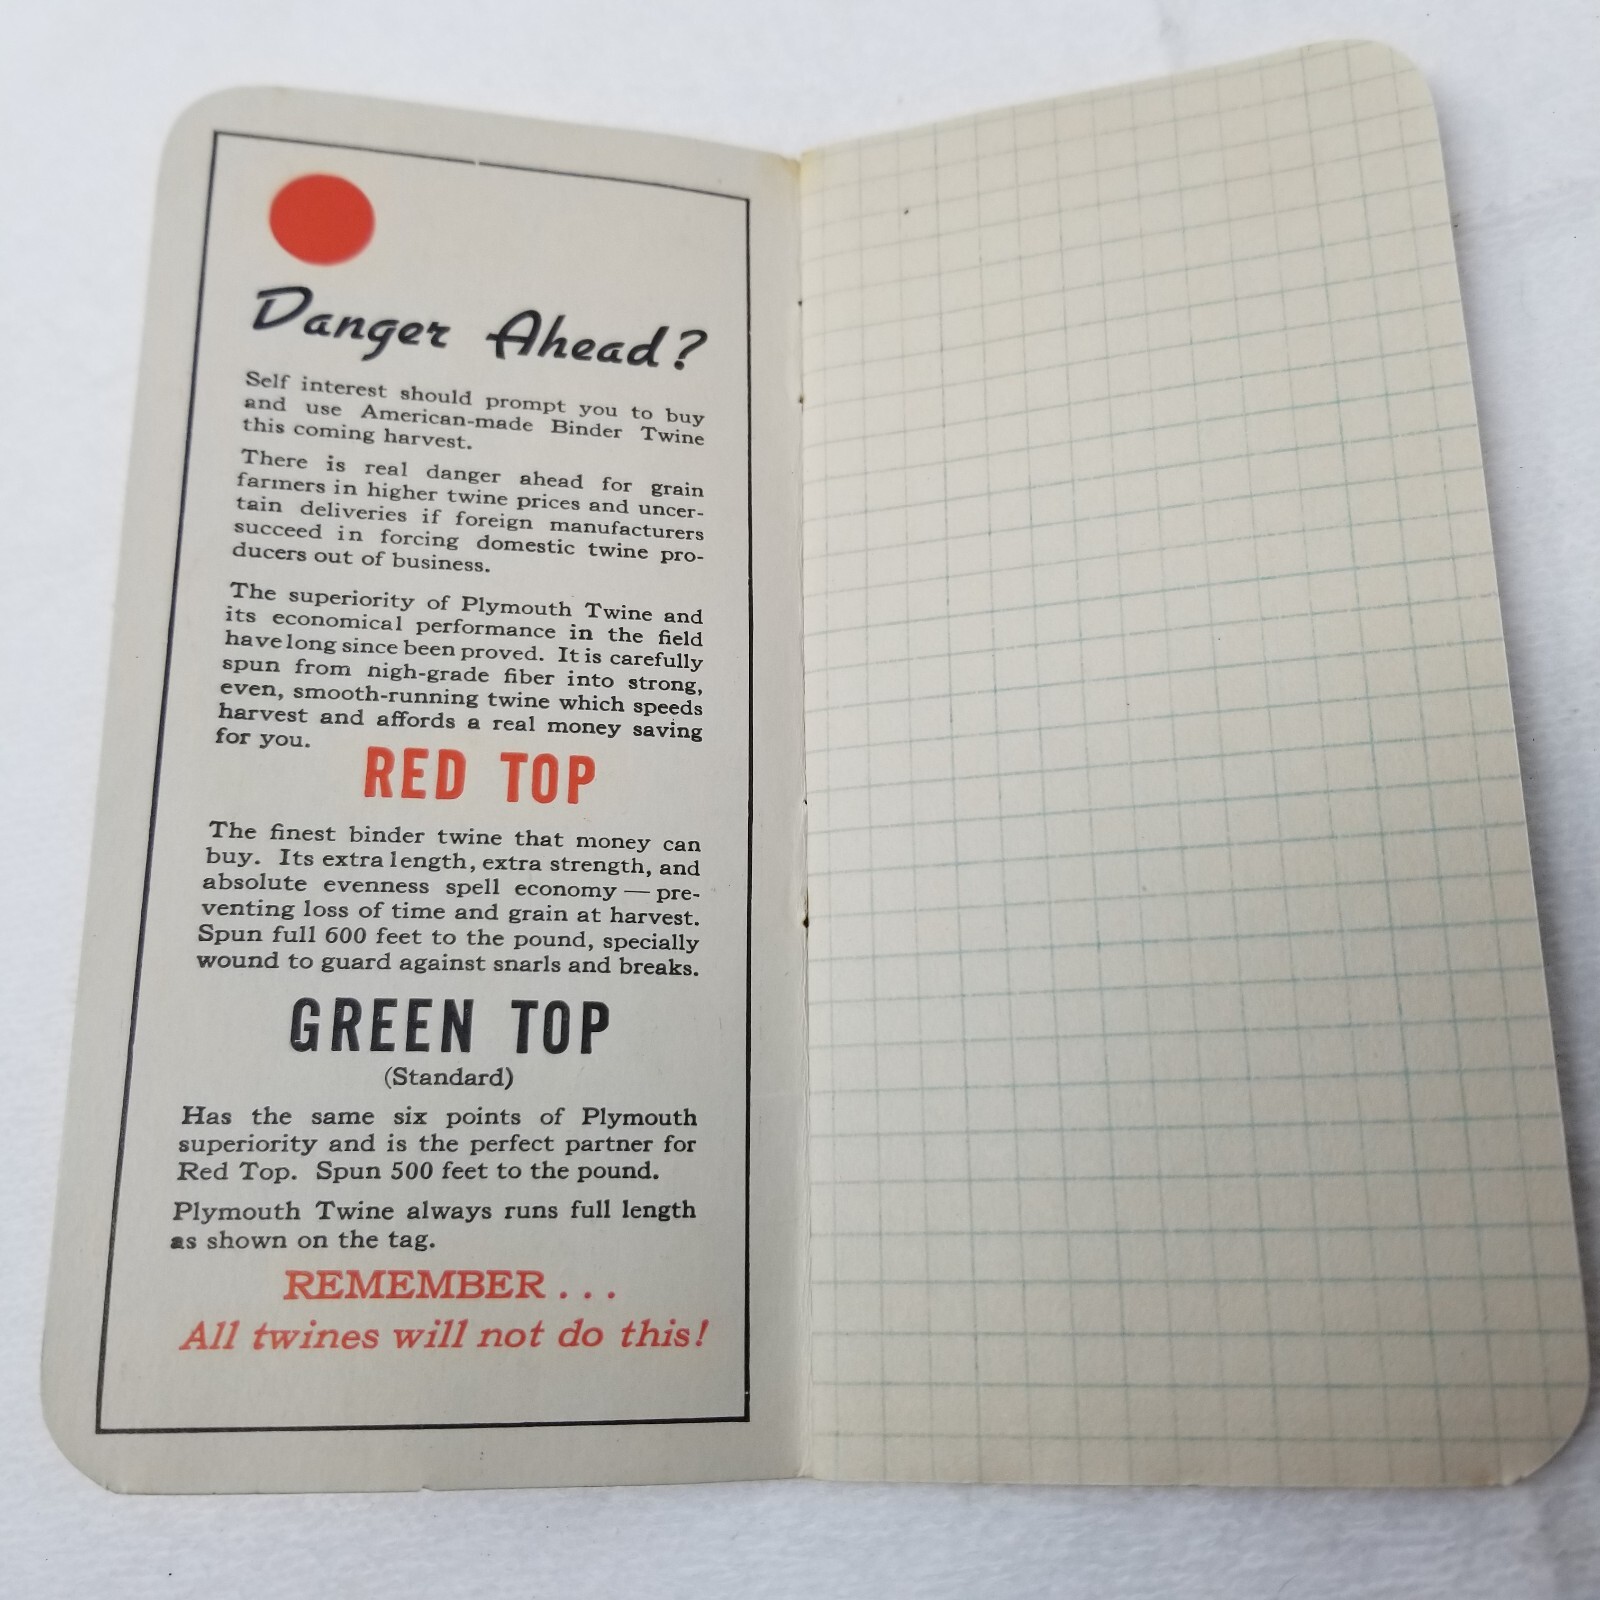 Danger Ahead?
Self interest should prompt you to buy
and use American-made Binder Twine
this coming harvest.
There is real danger ahead for grain
farmers in higher twine prices and uncer-
tain deliveries if foreign manufacturers
succeed in forcing domestic twine pro-
ducers out of business.
The superiority of Plymouth Twine and
its economical performance in the field
have long since been proved. It is carefully
spun from nigh-grade fiber into strong,
even, smooth-running twine which speeds
harvest and affords a real money saving
for you.
RED TOP
The finest binder twine that money can
buy. Its extra length, extra strength, and
absolute evenness spell economy — pre-
venting loss of time and grain at harvest.
Spun full 600 feet to the pound, specially
wound to guard against snarls and breaks.
GREEN TOP
(Standard)
Has the same six points of Plymouth
superiority and is the perfect partner for
Red Top. Spun 500 feet to the pound.
Plymouth Twine always runs full length
as shown on the tag.
REMEMBER . . .
All twines will not do this!